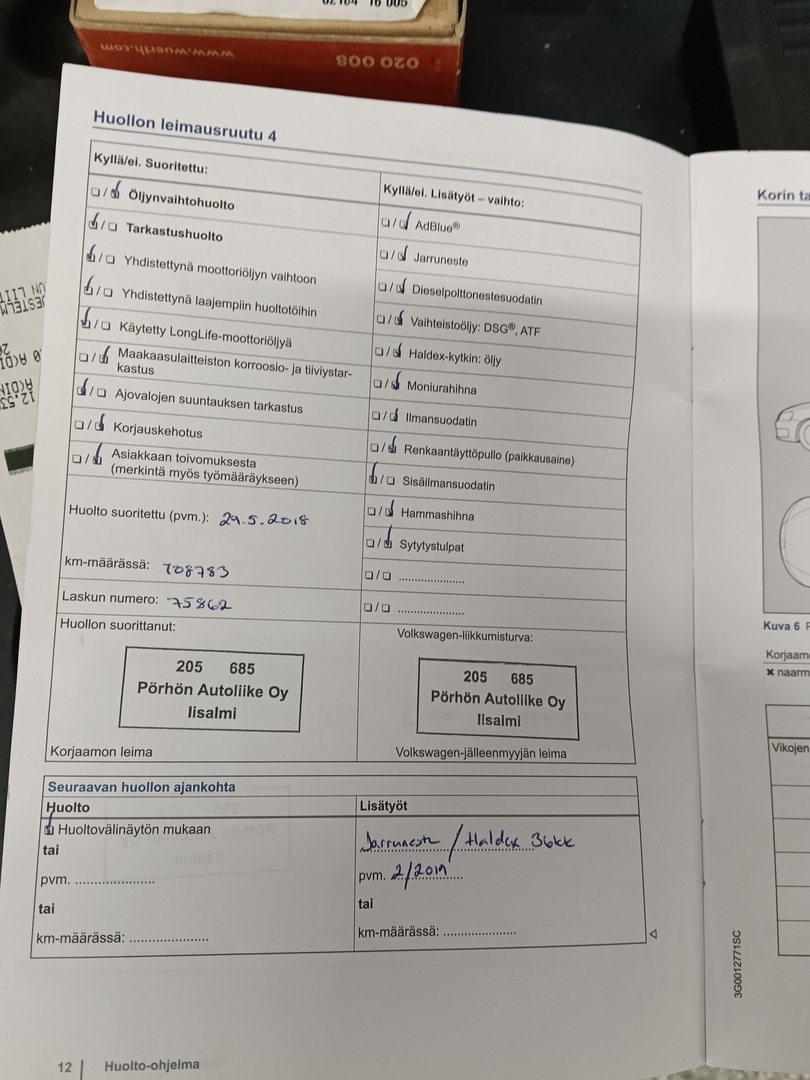 02184 16 005
www.wuerth.com
020 008
Huollon leimausruutu 4
Kyllä/ei. Suoritettu:
☐/☑ Öljynvaihtohuolto
☑/☐ Tarkastushuolto
☑/☐ Yhdistettynä moottoriöljyn vaihtoon
☑/☐ Yhdistettynä laajempiin huoltotöihin
☑/☐ Käytetty LongLife-moottoriöljyä
☐/☑ Maakaasulaitteiston korroosio- ja tiiviystar-
kastus
☑/☐ Ajovalojen suuntauksen tarkastus
☐/☑ Korjauskehotus
☐/☑ Asiakkaan toivomuksesta
(merkintä myös työmääräykseen)
Huolto suoritettu (pvm.): 29.5.2018
km-määrässä: 108783
Laskun numero: 75862
Huollon suorittanut:
205 685
Pörhön Autoliike Oy
Iisalmi
Korjaamon leima
Kyllä/ei. Lisätyöt – vaihto:
☐/☑ AdBlue®
☐/☑ Jarruneste
☐/☑ Dieselpolttonestesuodatin
☐/☑ Vaihteistoöljy: DSG®, ATF
☐/☑ Haldex-kytkin: öljy
☐/☑ Moniurahihna
☐/☑ Ilmansuodatin
☐/☑ Renkaantäyttöpullo (paikkausaine)
☑/☐ Sisäilmansuodatin
☐/☑ Hammashihna
☐/☑ Sytytystulpat
☐/☐ ......................
☐/☐ ......................
Volkswagen-liikkumisturva:
205 685
Pörhön Autoliike Oy
Iisalmi
Volkswagen-jälleenmyyjän leima
Seuraavan huollon ajankohta
Huolto
☑ Huoltovälinäytön mukaan
tai
pvm. ......................
tai
km-määrässä: ......................
Lisätyöt
Jarruneste / Haldex 36kk
pvm. 2/2019
tai
km-määrässä: ......................
12 | Huolto-ohjelma
Korin ta
Kuva 6 F
Korjaam
✖ naarm
Vikojen
3G0012771SC